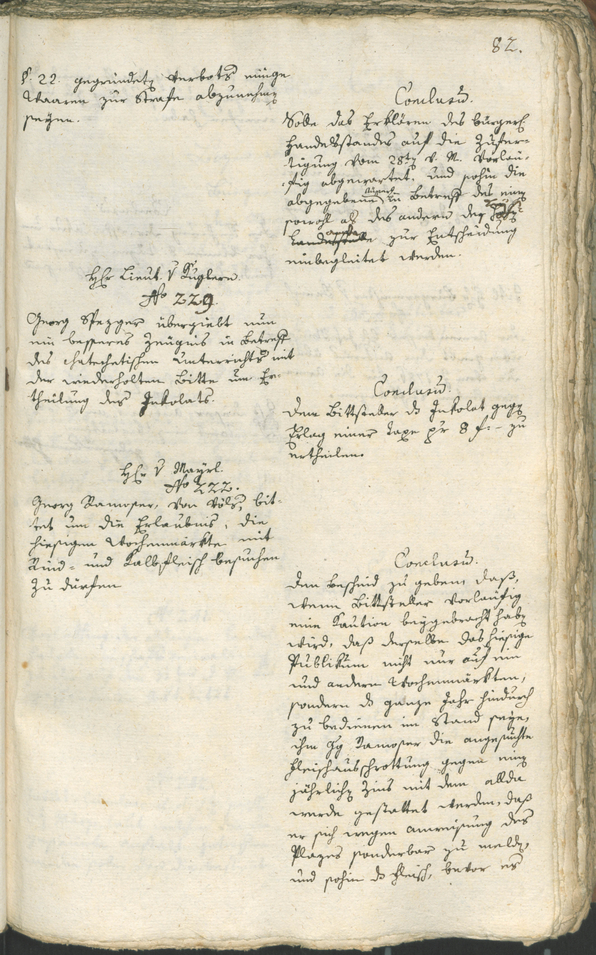 82.
§. 22. gegründeten Verbots einige
Waaren zur Strafe abzunehmen
seyen.
Conclusū.
Solle das Erklären des bürgerl.
Handelsstandes auf die Zufer-
tigung vom 28ten v. M. vorläu-
fig abgewartet, und sohin die
abgegebene in Betreff des einen
sowohl als des andern der
zur Entscheidung
einbegleitet werden.
Hr Lieut. v Kuglern.
No 229.
Georg Spezger übergiebt nun
ein besseres Zeugnis in Betreff
des chatechetischen Unterrichts mit
der wiederholten Bitte um Er-
theilung des Inkolats.
Conclusū.
Dem Bittsteller ds Inkolat gegen
Erlag einer Taxe pr 8 f:- zu
ertheilen.
Hr v Mayrl.
No 222.
Georg Ramoser, von Völs, bit-
tet um die Erlaubnis, die
hiesigen Wochenmärkte mit
Rind- und Kalbfleisch besuchen
zu dürfen
Conclusū.
Den Bescheid zu geben, daß,
wenn Bittsteller vorläufig
eine Kaution beygebracht haben
wird, daß derselbe das hiesige
Publikum nicht nur auf ein
und andern Wochenmärkten,
sondern ds ganze Jahr hindurch
zu bedienen im Stand seye,
ihm Gg Ramoser die angesuchte
Fleischausschrottung gegen einen
jährlichen Zins mit dem allda
werde gestattet werden, daß
er sich wegen Anweisung des
Plazes sonderbar zu melden,
und sohin ds Fleisch, bevor er